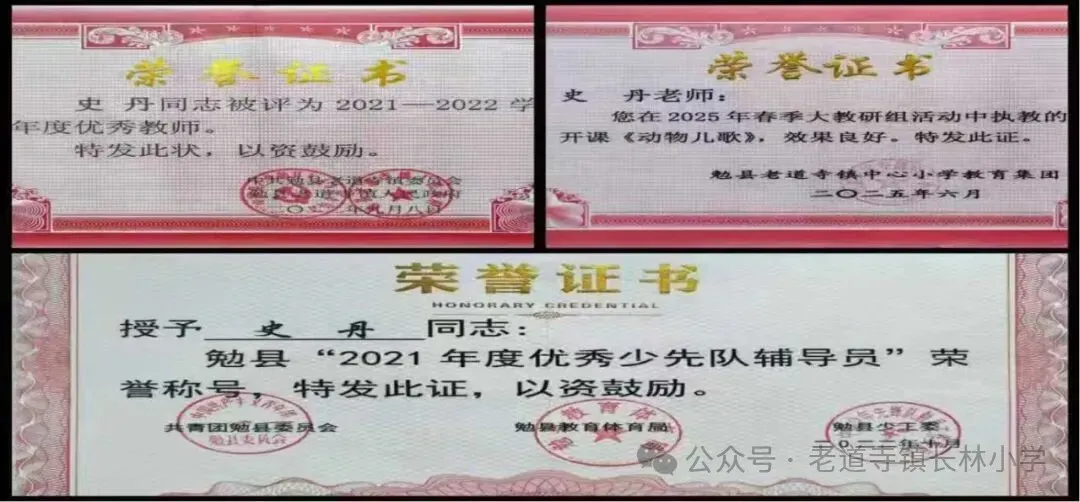 荣誉证书
史 丹同志被评为2021—2022学
年度优秀教师。
特发此状，以资鼓励。
中共勉县老道寺镇委员会
勉县老道寺镇人民政府
年九月八日
荣誉证书
史 丹老师：
您在2025年春季大教研组活动中执教的
开课《动物儿歌》，效果良好。特发此证。
勉县老道寺镇中心小学教育集团
二〇二五年六月
荣誉证书
HONORARY CREDENTIAL
授予 史 丹 同志：
勉县“2021年度优秀少先队辅导员”荣
誉称号，特发此证，以资鼓励。
共青团勉县委员会
勉县教育体育局
勉县少工委
公众号·老道寺镇长林小学